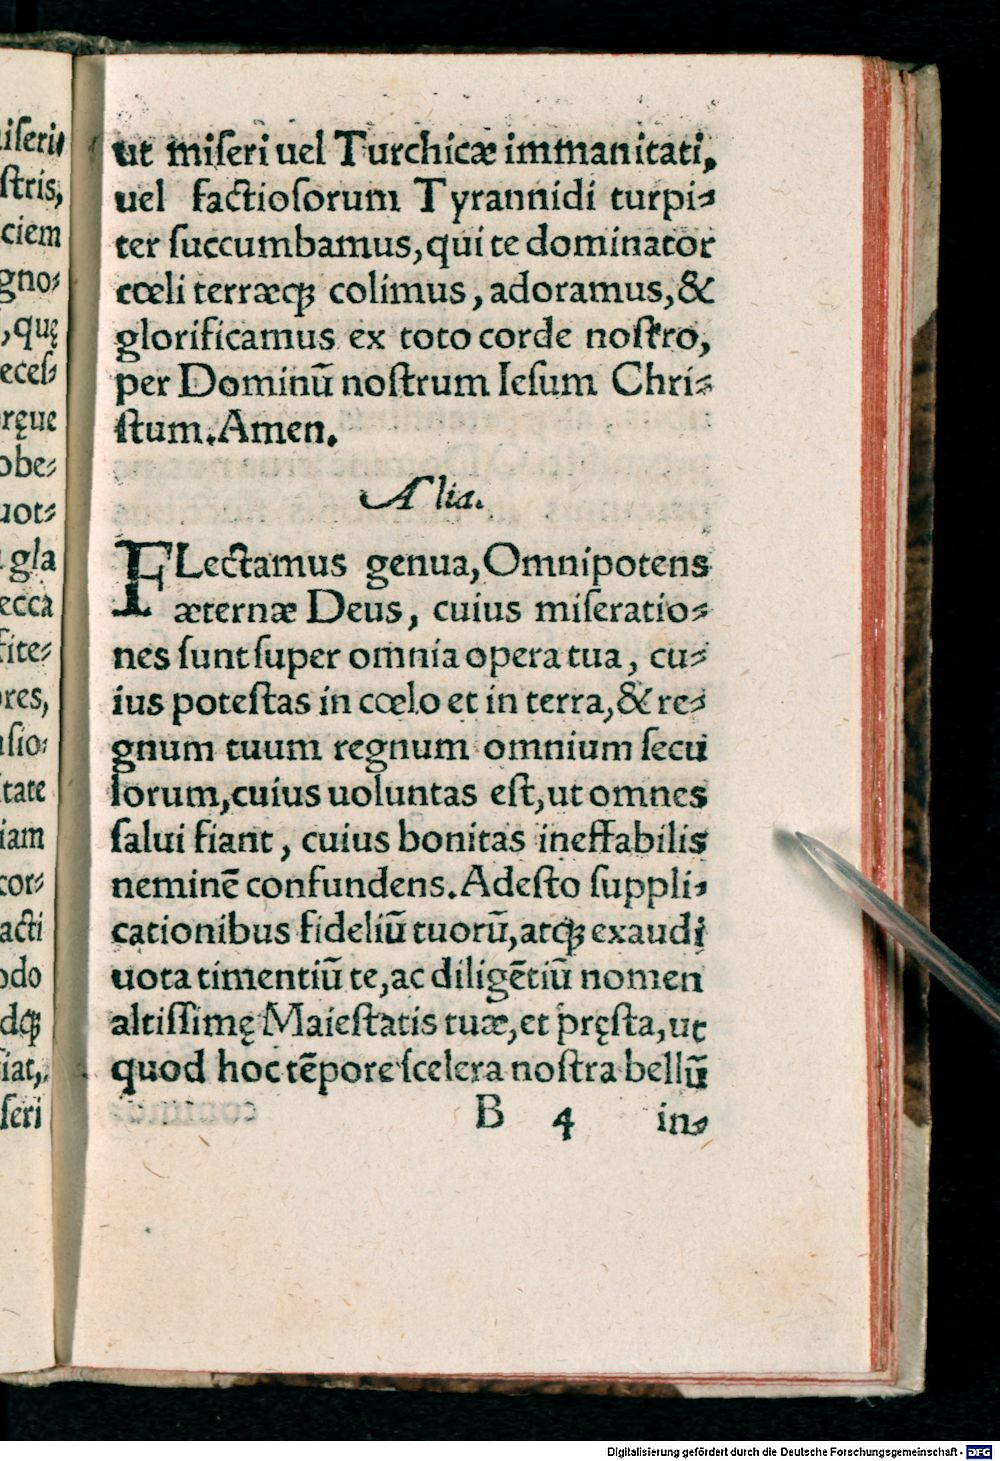 ut miseri uel Turchicæ immanitati,
uel factiosorum Tyrannidi turpi⸗
ter succumbamus, qui te dominator
cœli terræq; colimus, adoramus, &
glorificamus ex toto corde nostro,
per Dominũ nostrum Iesum Chri⸗
stum. Amen.
Alia.
FLectamus genua, Omnipotens
æternæ Deus, cuius miseratio⸗
nes sunt super omnia opera tua, cu⸗
ius potestas in cœlo et in terra, & re⸗
gnum tuum regnum omnium secu
lorum, cuius uoluntas est, ut omnes
salui fiant, cuius bonitas ineffabilis
neminẽ confundens. Adesto suppli⸗
cationibus fideliũ tuorũ, atq; exaudi
uota timentiũ te, ac diligẽtiũ nomen
altissimę Maiestatis tuæ, et pręsta, ut
quod hoc tẽpore scelera nostra bellũ
B 4 in⸗
iseri
stris,
ciem
gno⸗
, quę
eces⸗
ręue
obe⸗
uot⸗
gla
ecca
fite⸗
res,
sio⸗
tate
iam
cor⸗
acti
odo
dq;
siat,
seri
Digitalisierung gefördert durch die Deutsche Forschungsgemeinschaft - DFG